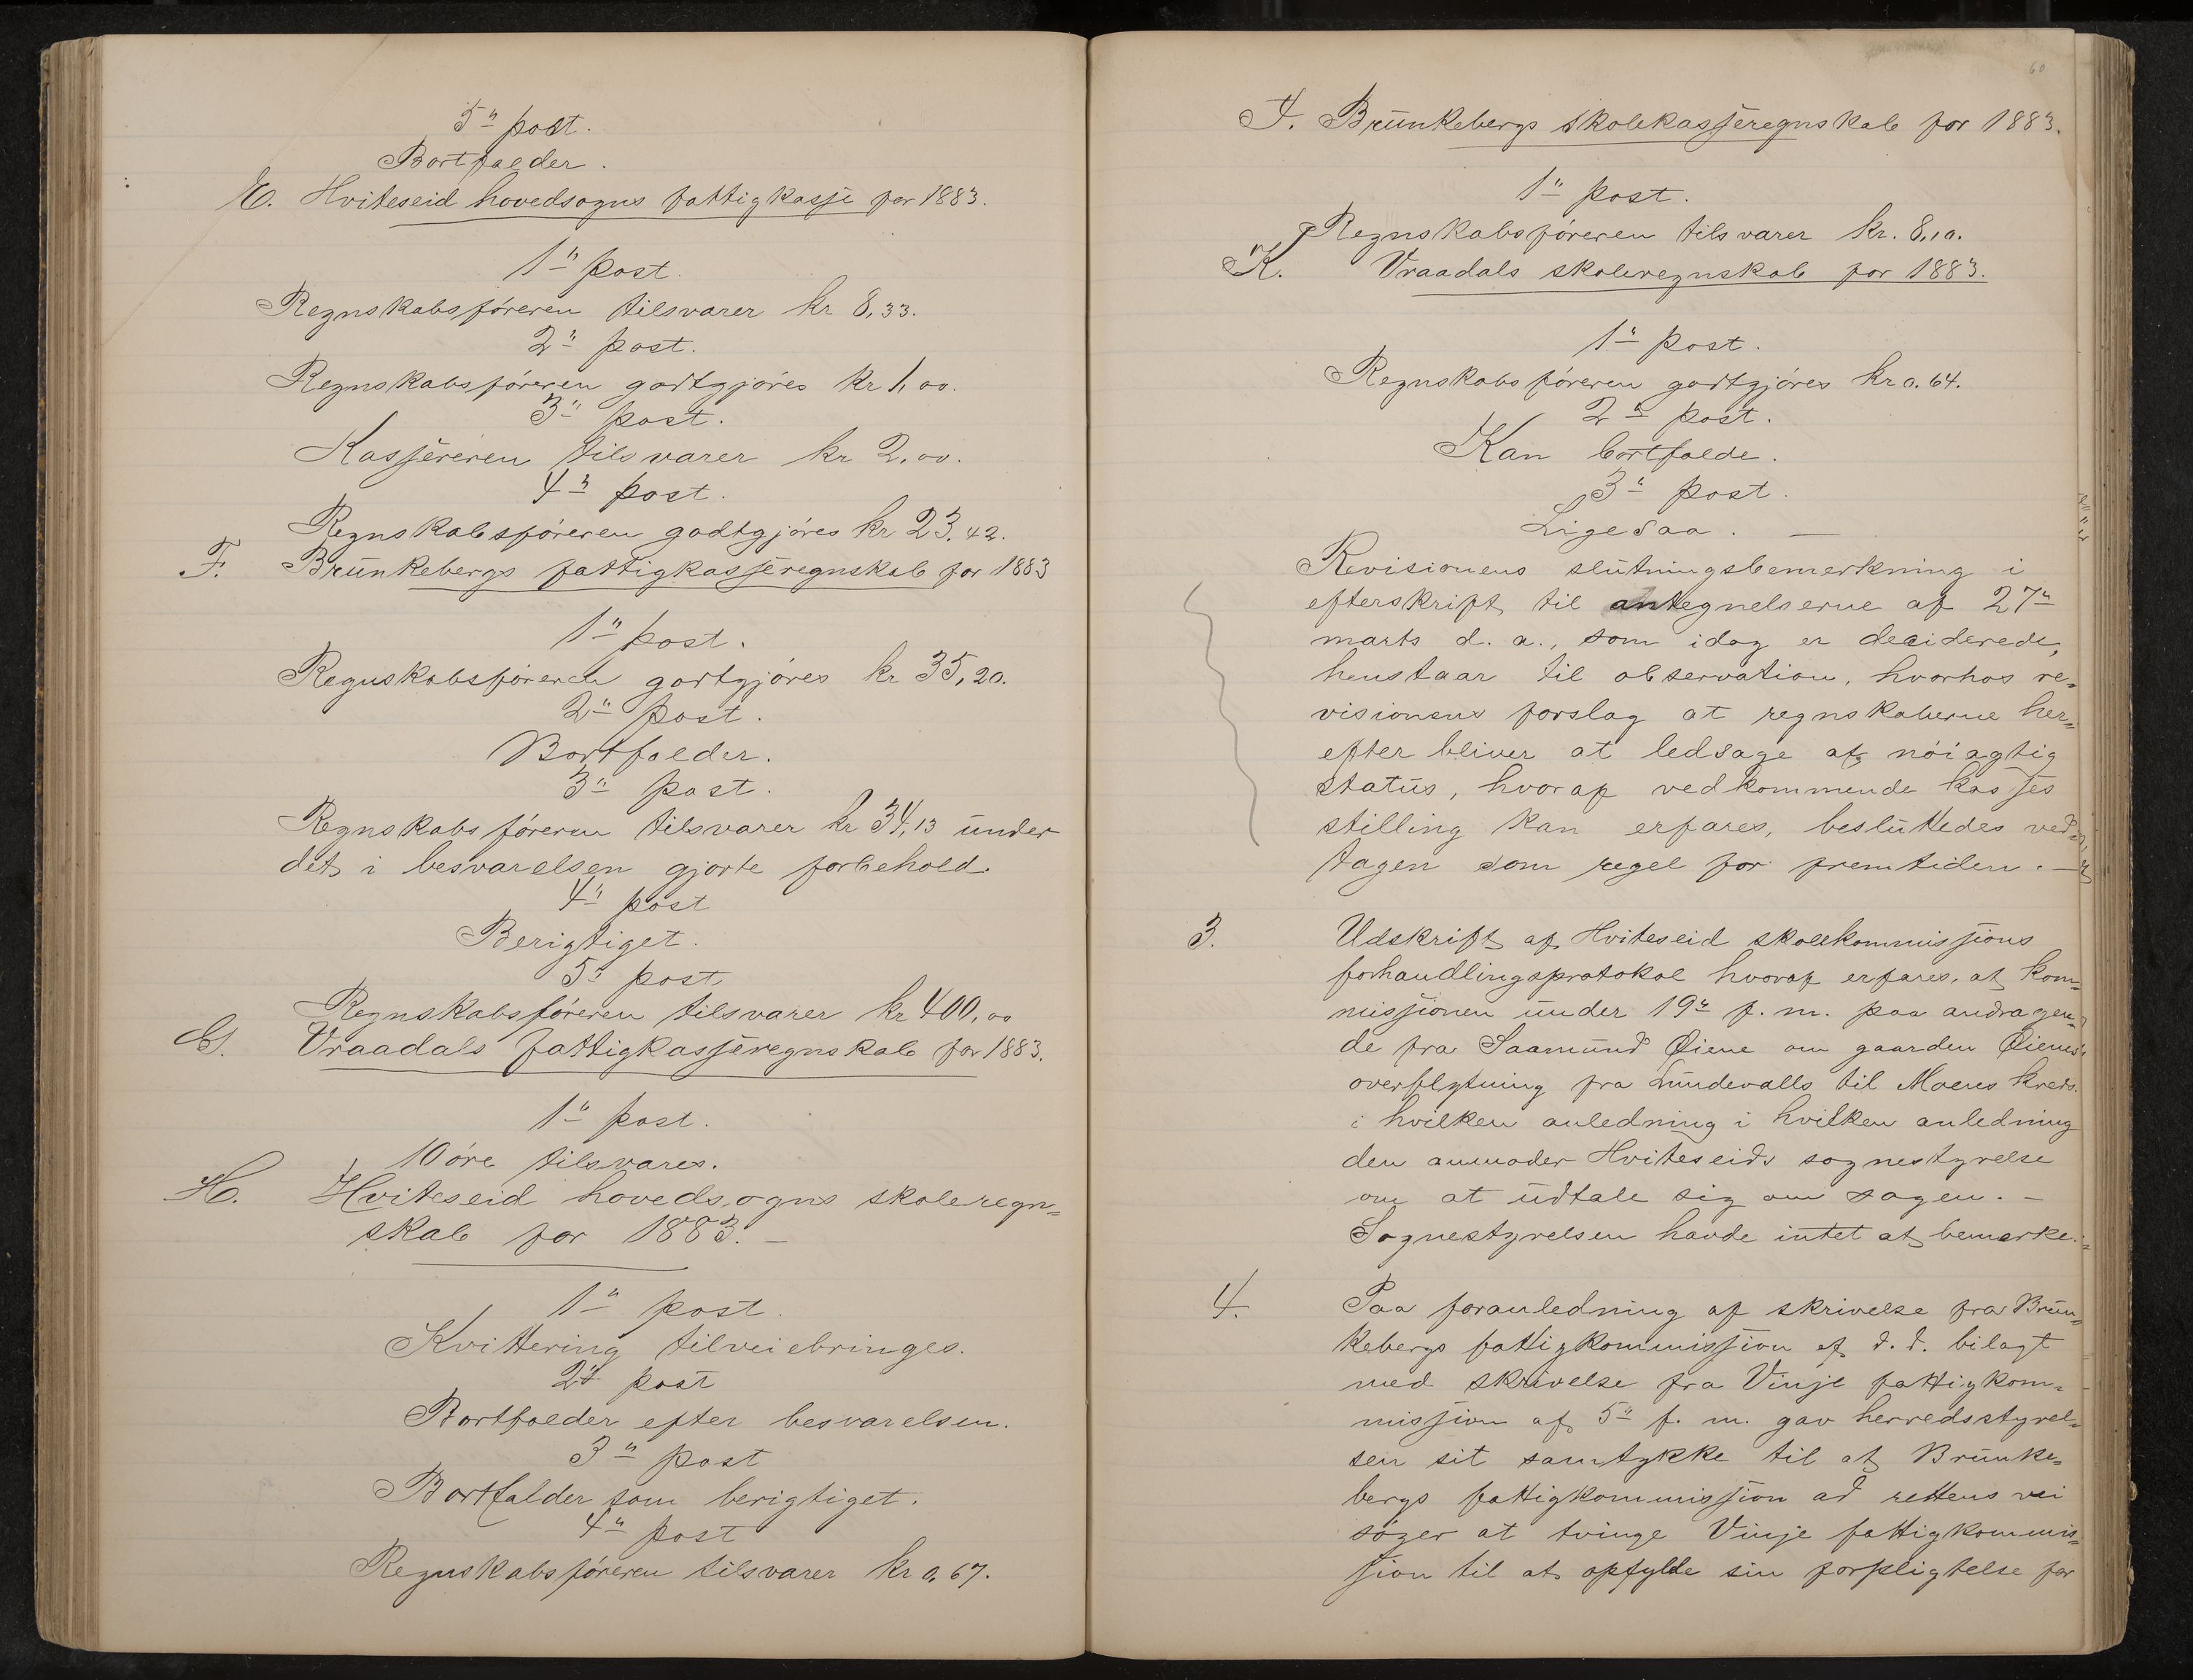 5" post.
Bortfalder.
E. Hviteseid hovedsogns fattigkasse for 1883.
1" post.
Regnskabsføreren tilsvarer kr 8,33.
2" post.
Regnskabsføreren godtgjøres kr 1,00.
3" post.
Kassereren tilsvarer kr 2,00.
4" post.
Regnskabsføreren godtgjøres kr 23,42.
F. Brunkebergs fattigkasseregnskab for 1883
1" post.
Regnskabsføreren godtgjøres kr 35,20.
2" post.
Bortfalder.
3" post.
Regnskabsføreren tilsvarer kr 34,13 under
det i besvarelsen gjorte forbehold.
4" post
Berigtiget.
5" post.
Regnskabsføreren tilsvarer kr 400,00
G. Vraadals fattigkasseregnskab for 1883.
1" post.
10 øre tilsvares.
H. Hviteseid hovedsogns skoleregn=
skab for 1883. –
1" post.
Kvittering tilveiebringes.
2" post
Bortfalder efter besvarelsen.
3" post
Bortfalder som berigtiget.
4" post
Regnskabsføreren tilsvarer kr 0,67.
60
I. Brunkebergs skolekasseregnskab for 1883.
1" post.
Regnskabsføreren tilsvarer kr. 8,10.
K. Vraadals skoleregnskab for 1883.
1" post.
Regnskabsføreren godtgjøres kr 0.64.
2" post.
Kan bortfalde.
3" post.
Ligesaa. –
Revisionens slutningsbemerkning i
efterskrift til antegnelserne af 27"
marts d. a., som idag er deciderede,
henstaar til observation, hvorhos re=
visionens forslag at regnskaberne her=
efter bliver at ledsage af nøiagtig
status, hvoraf vedkommende kasses
stilling kan erfares, besluttedes ved=
tagen som regel for fremtiden. –
3. Udskrift af Hviteseid skolekommissions
forhandlingsprotokol hvoraf erfares, at kom=
missionen under 19" f. m. paa andragen=
de fra Saamund Øiene om gaarden Øienes
overflytning fra Lundevalls til Moenes kreds.
i hvilken anledning i hvilken anledning
den anmoder Hviteseids sognestyrelse
om at udtale sig om sagen. –
Sognestyrelsen havde intet at bemerke.
4. Paa foranledning af skrivelse fra Brun=
kebergs fattigkommission af d. d. bilagt
med skrivelse fra Vinje fattigkom=
mission af 5" f. m. gav herredsstyrel=
sen sit samtykke til at Brunke=
bergs fattigkommission ad rettens vei
søger at tvinge Vinje fattigkommis=
sion til at opfylde sin forpligtelse for